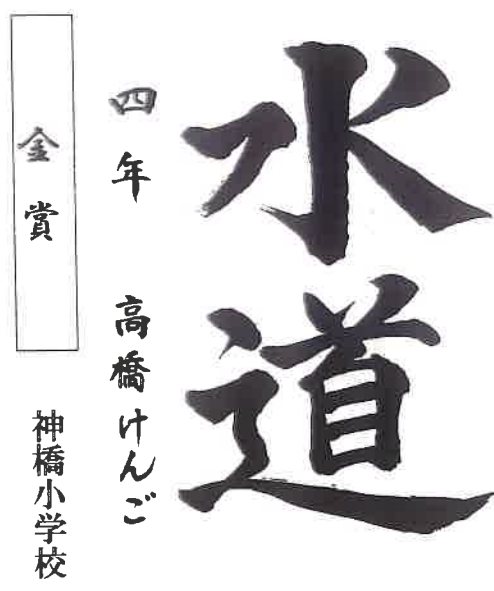 水道
四年 高橋けんご
金賞
神橋小学校